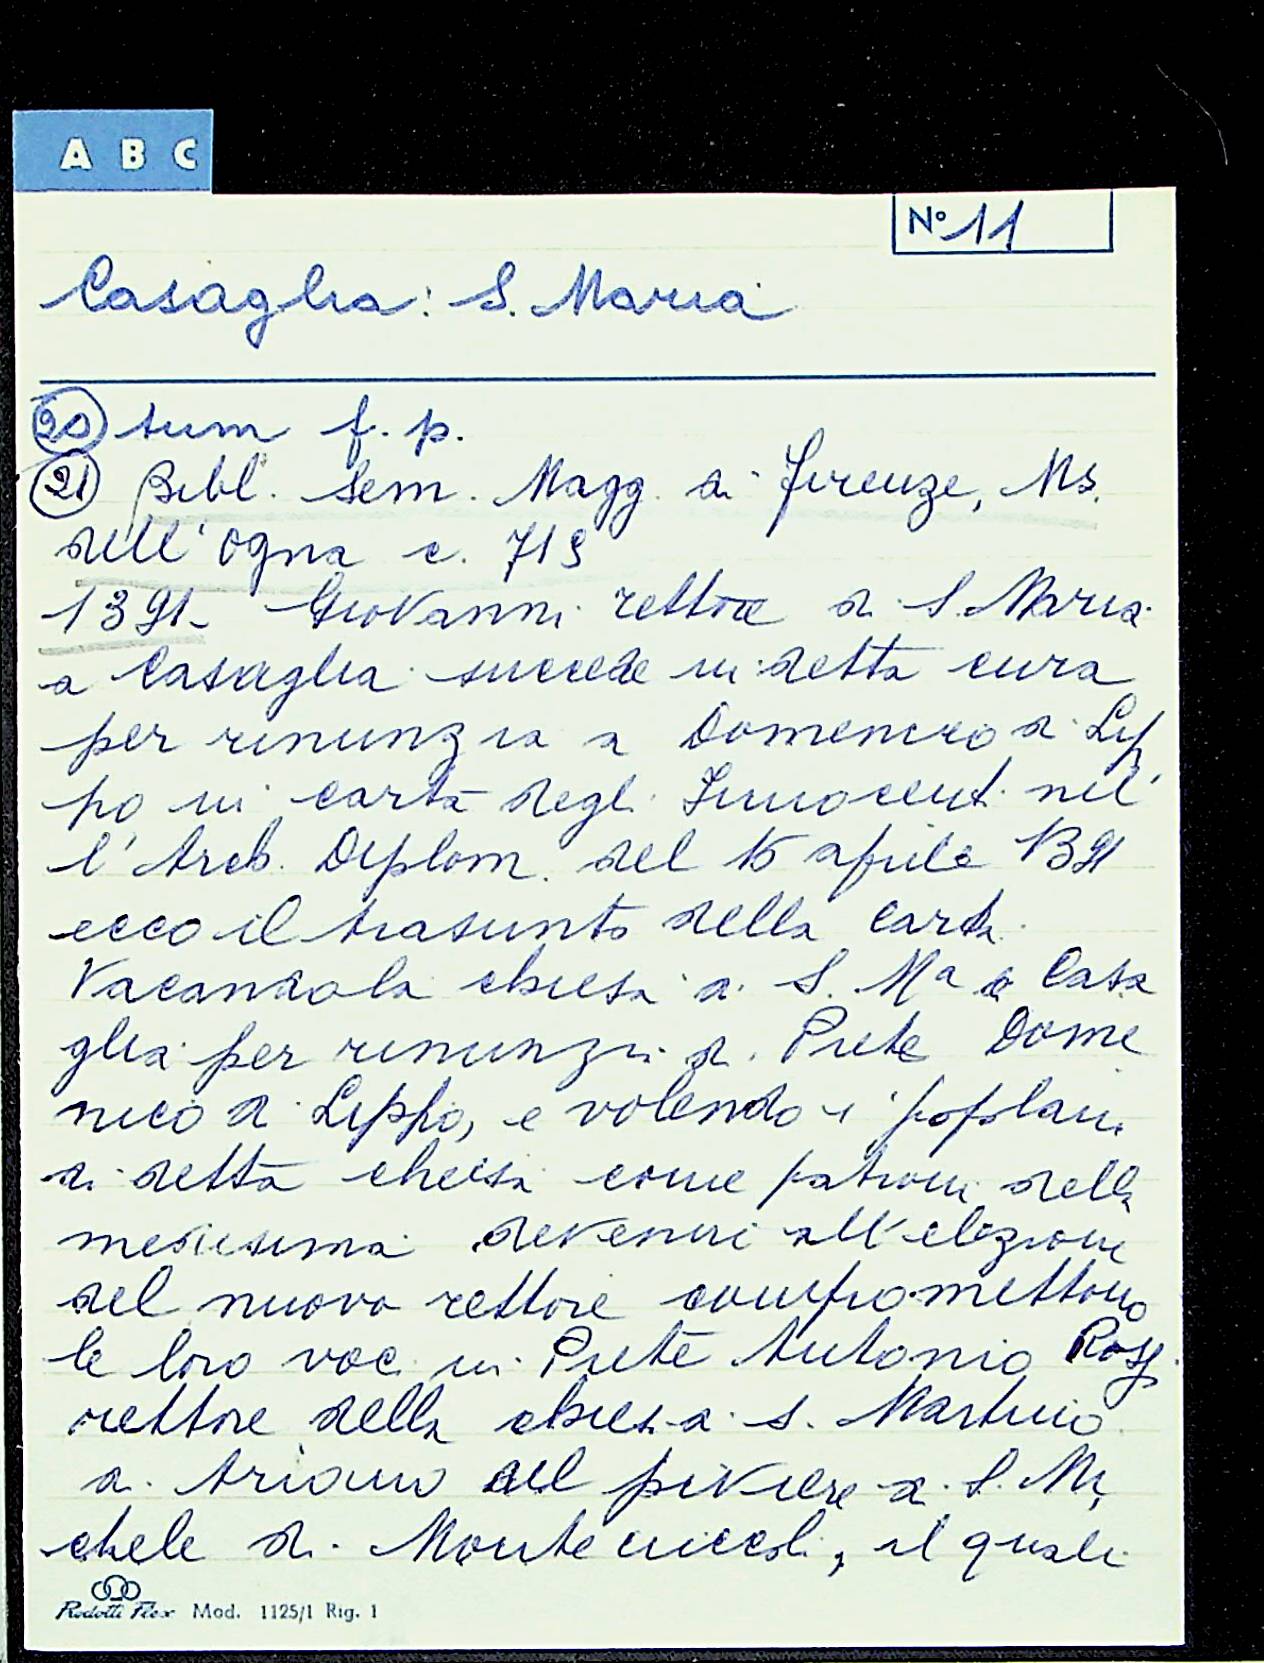 A B C
N° 11
Casaglia: S. Maria
20 sum f. p.
21 Bibl. Sem. Magg. di Firenze, Ms.
dell'Ogna c. 719
1391- Giovanni rettore di S. Maria
a Casaglia succede in detta cura
per rinunzia di Domenico di Lip
po in carta degl' Innocenti nel
l'Arch. Diplom. del 15 aprile 1391
ecco il trasunto della carta.
Vacando la chiesa di S. Ma a Casa
glia per rinunzia di Prete Dome
nico di Lippo, e volendo i popolani
di detta chiesa come patroni della
medesima devenire all'elezione
del nuovo rettore compromettono
le loro voci in Prete Antonio
rettore della chiesa di S. Martino
a del piviere di S. Mi
chele di Montecuccoli, il quale
Mod. 1125/1 Rig. 1